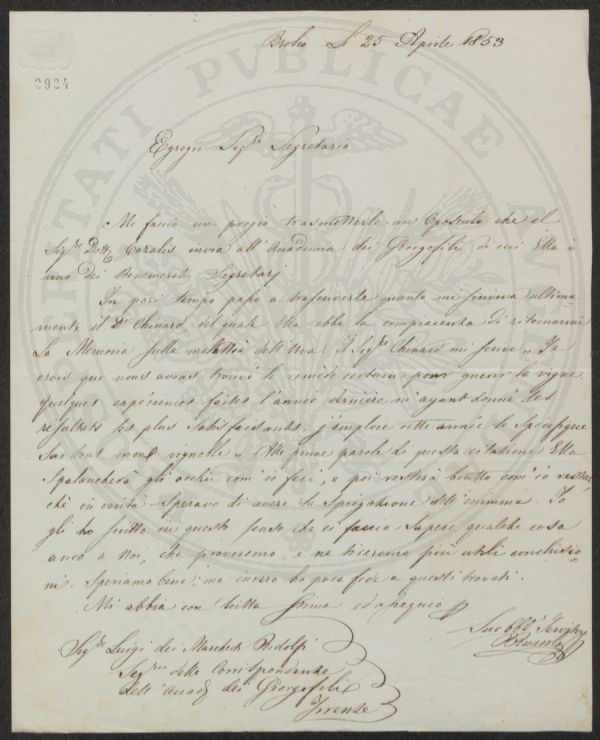 2924
Brolio Li 25 Aprile 1853
Egregio Sigre Segretario
Mi faccio un pregio trasmetterle un Opuscolo che il
Sigre Dott. invia all'Accademia dei Georgofili di cui Ella è
uno dei Benemeriti Segretarj.
In pari tempo passo a trascriverle quanto mi scriveva ultima
mente il Sr Chinard, del quale Ella ebbe la compiacenza di ritornarmi
la Memoria sulla malattia dell'Uva. Il Sigre Chinard mi scrive „ Je
crois que nous avons trouvé le remède certain pour guerir la vigne
quelques expériences faites l'année dernière m'ayant donné des
resultats les plus satisfaisants, j'emploie cette année le
sur tout mon vignoble „ Alle prime parole di questa citazione Ella
spalancherà gli occhi com'io feci, e poi resterà brutto com'io restai,
chè in verità speravo di avere la spiegazione dell'enimma. Io
gli ho scritto in questo senso che ci faccia sapere qualche cosa
anco a noi, che proveremo, e ne tireremo più utili conclusio=
ni. Speriamo bene; ma invero ho poca fede a questi trovati.
Mi abbia con tutta stima ed ossequio
Suo Obbl Servitore
Sigre Luigi dei Marchesi Ridolfi
Segrio delle Corrispondenze
dell'Accad dei Georgofili
Firenze